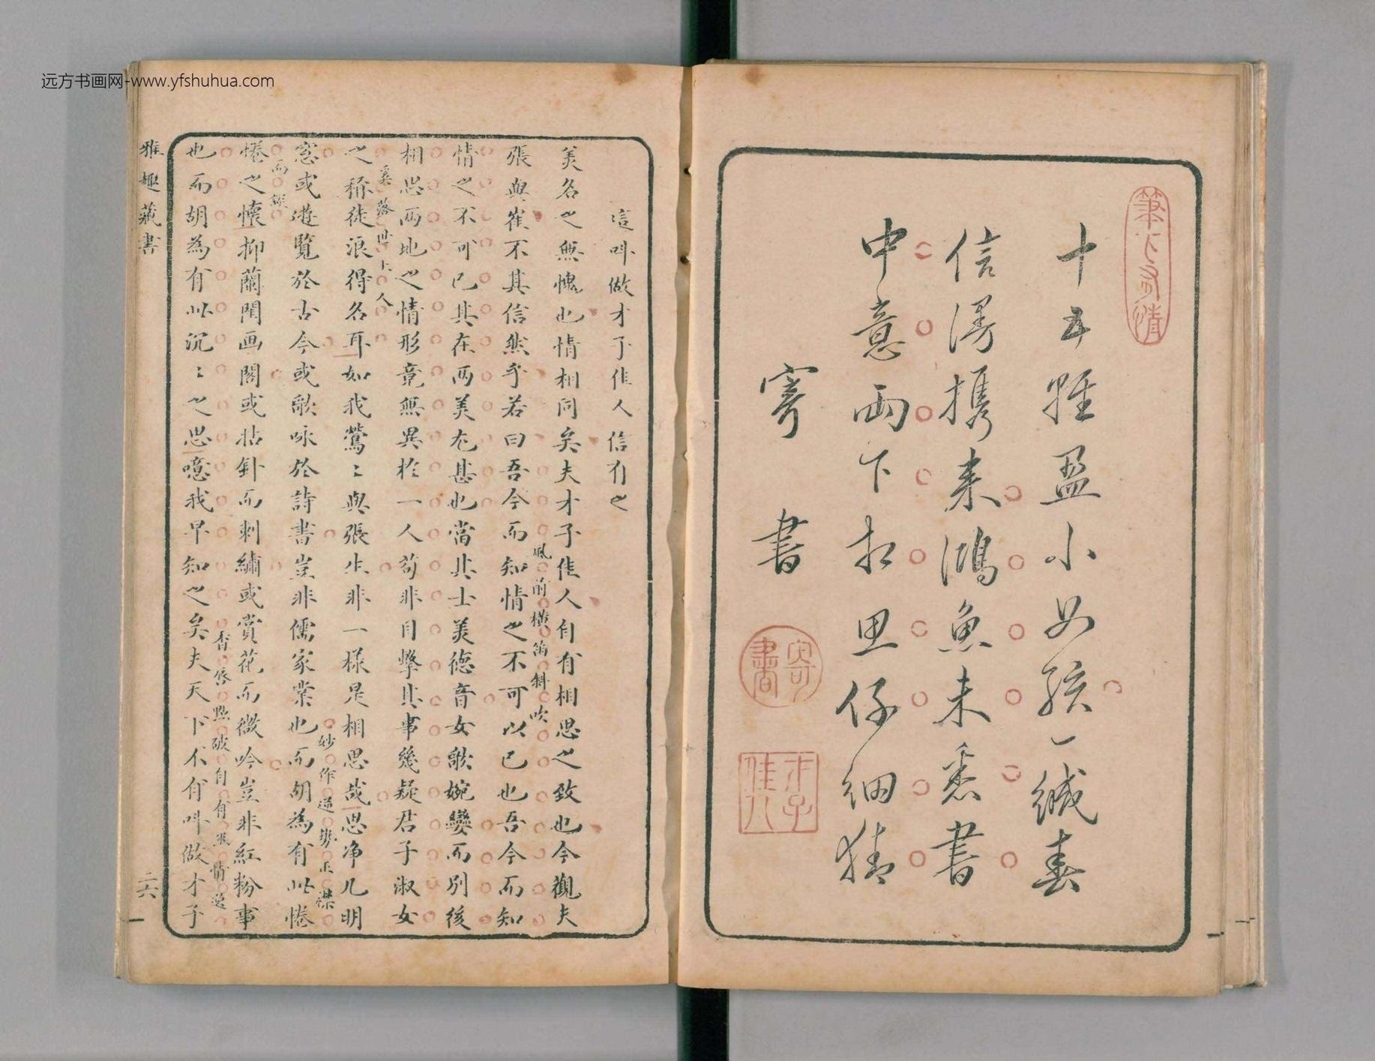 远方书画网-www.yfshuhua.com
筆下多情
十五雖盈小女孩一緘春
信漫携来鴻魚未悉書
中意両下相思仔細猜
寄書
寄書
才子佳人
這叫做才子佳人信有之
美名之無愧也情相同矣夫才子佳人自有相思之致也今觀夫
風前橫笛斜吹
張與崔不其信然乎若曰吾今而知情之不可以已也吾今而知
情之不可已其在両美尤甚也當其士美德音女歌婉孌而別後
相思両地之情形竟無異於一人苟非目擊其事幾疑君子淑女
之稱徒浪得名耳如我鶯〻與張生非一樣是相思哉思净几明
妙作逆勢正襟
窓或遊覽於古今或歌咏於詩書豈非儒家業也而胡為有此惓
惓之懷抑蘭閨画閣或拈針而刺繡或賞花而微吟豈非紅粉事
杏唇點破自有
也而胡為有此沉〻之思噫我早知之矣夫天下不有叫做才子
雅趣藏書
二六